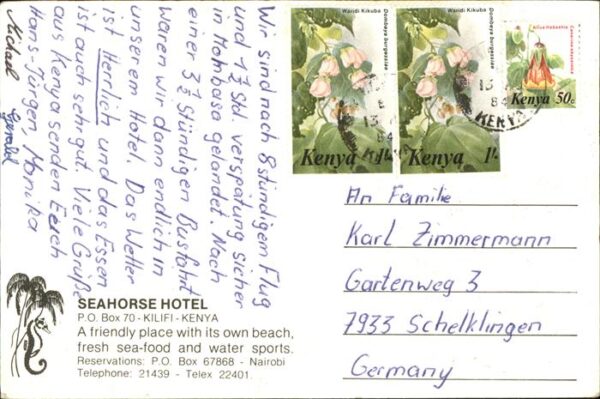 Wir sind nach 8stündigem Flug
und 1 1/2 Std. verspätung sicher
in Mombasa gelandet. Nach
einer 3 1/2 Stündigen Busfahrt
waren wir dann endlich in
unserem Hotel. Das Wetter
ist Herrlich und das Essen
ist auch sehr gut. Viele Grüße
aus Kenya senden Euch
Hans-Jürgen, Monika
Michael
Gerald
SEAHORSE HOTEL
P.O. Box 70 - KILIFI - KENYA
A friendly place with its own beach,
fresh sea-food and water sports.
Reservations: P.O. Box 67868 - Nairobi
Telephone: 21439 - Telex 22401.
Wandi Kikuba
Dombeya burgessiae
Kenya 1/-
Wandi Kikuba
Dombeya burgessiae
Kenya 1/-
Kenya 50c
13
84
KENYA
An Familie
Karl Zimmermann
Gartenweg 3
7933 Schelklingen
Germany